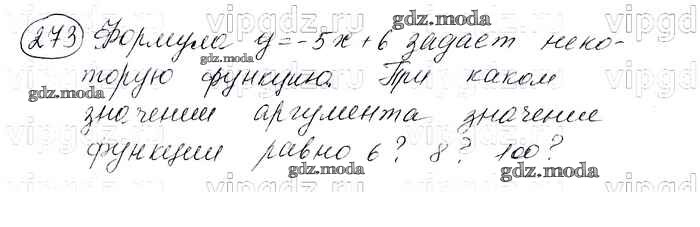 273 Формула y = -5x + 6 задает неко-
торую функцию. При каком
значении аргумента значение
функции равно 6? 8? 100?
gdz.moda
gdz.moda
gdz.moda
gdz.moda
gdz.moda
gdz.moda
vipgdz.ru
vipgdz.ru
vipgdz.ru